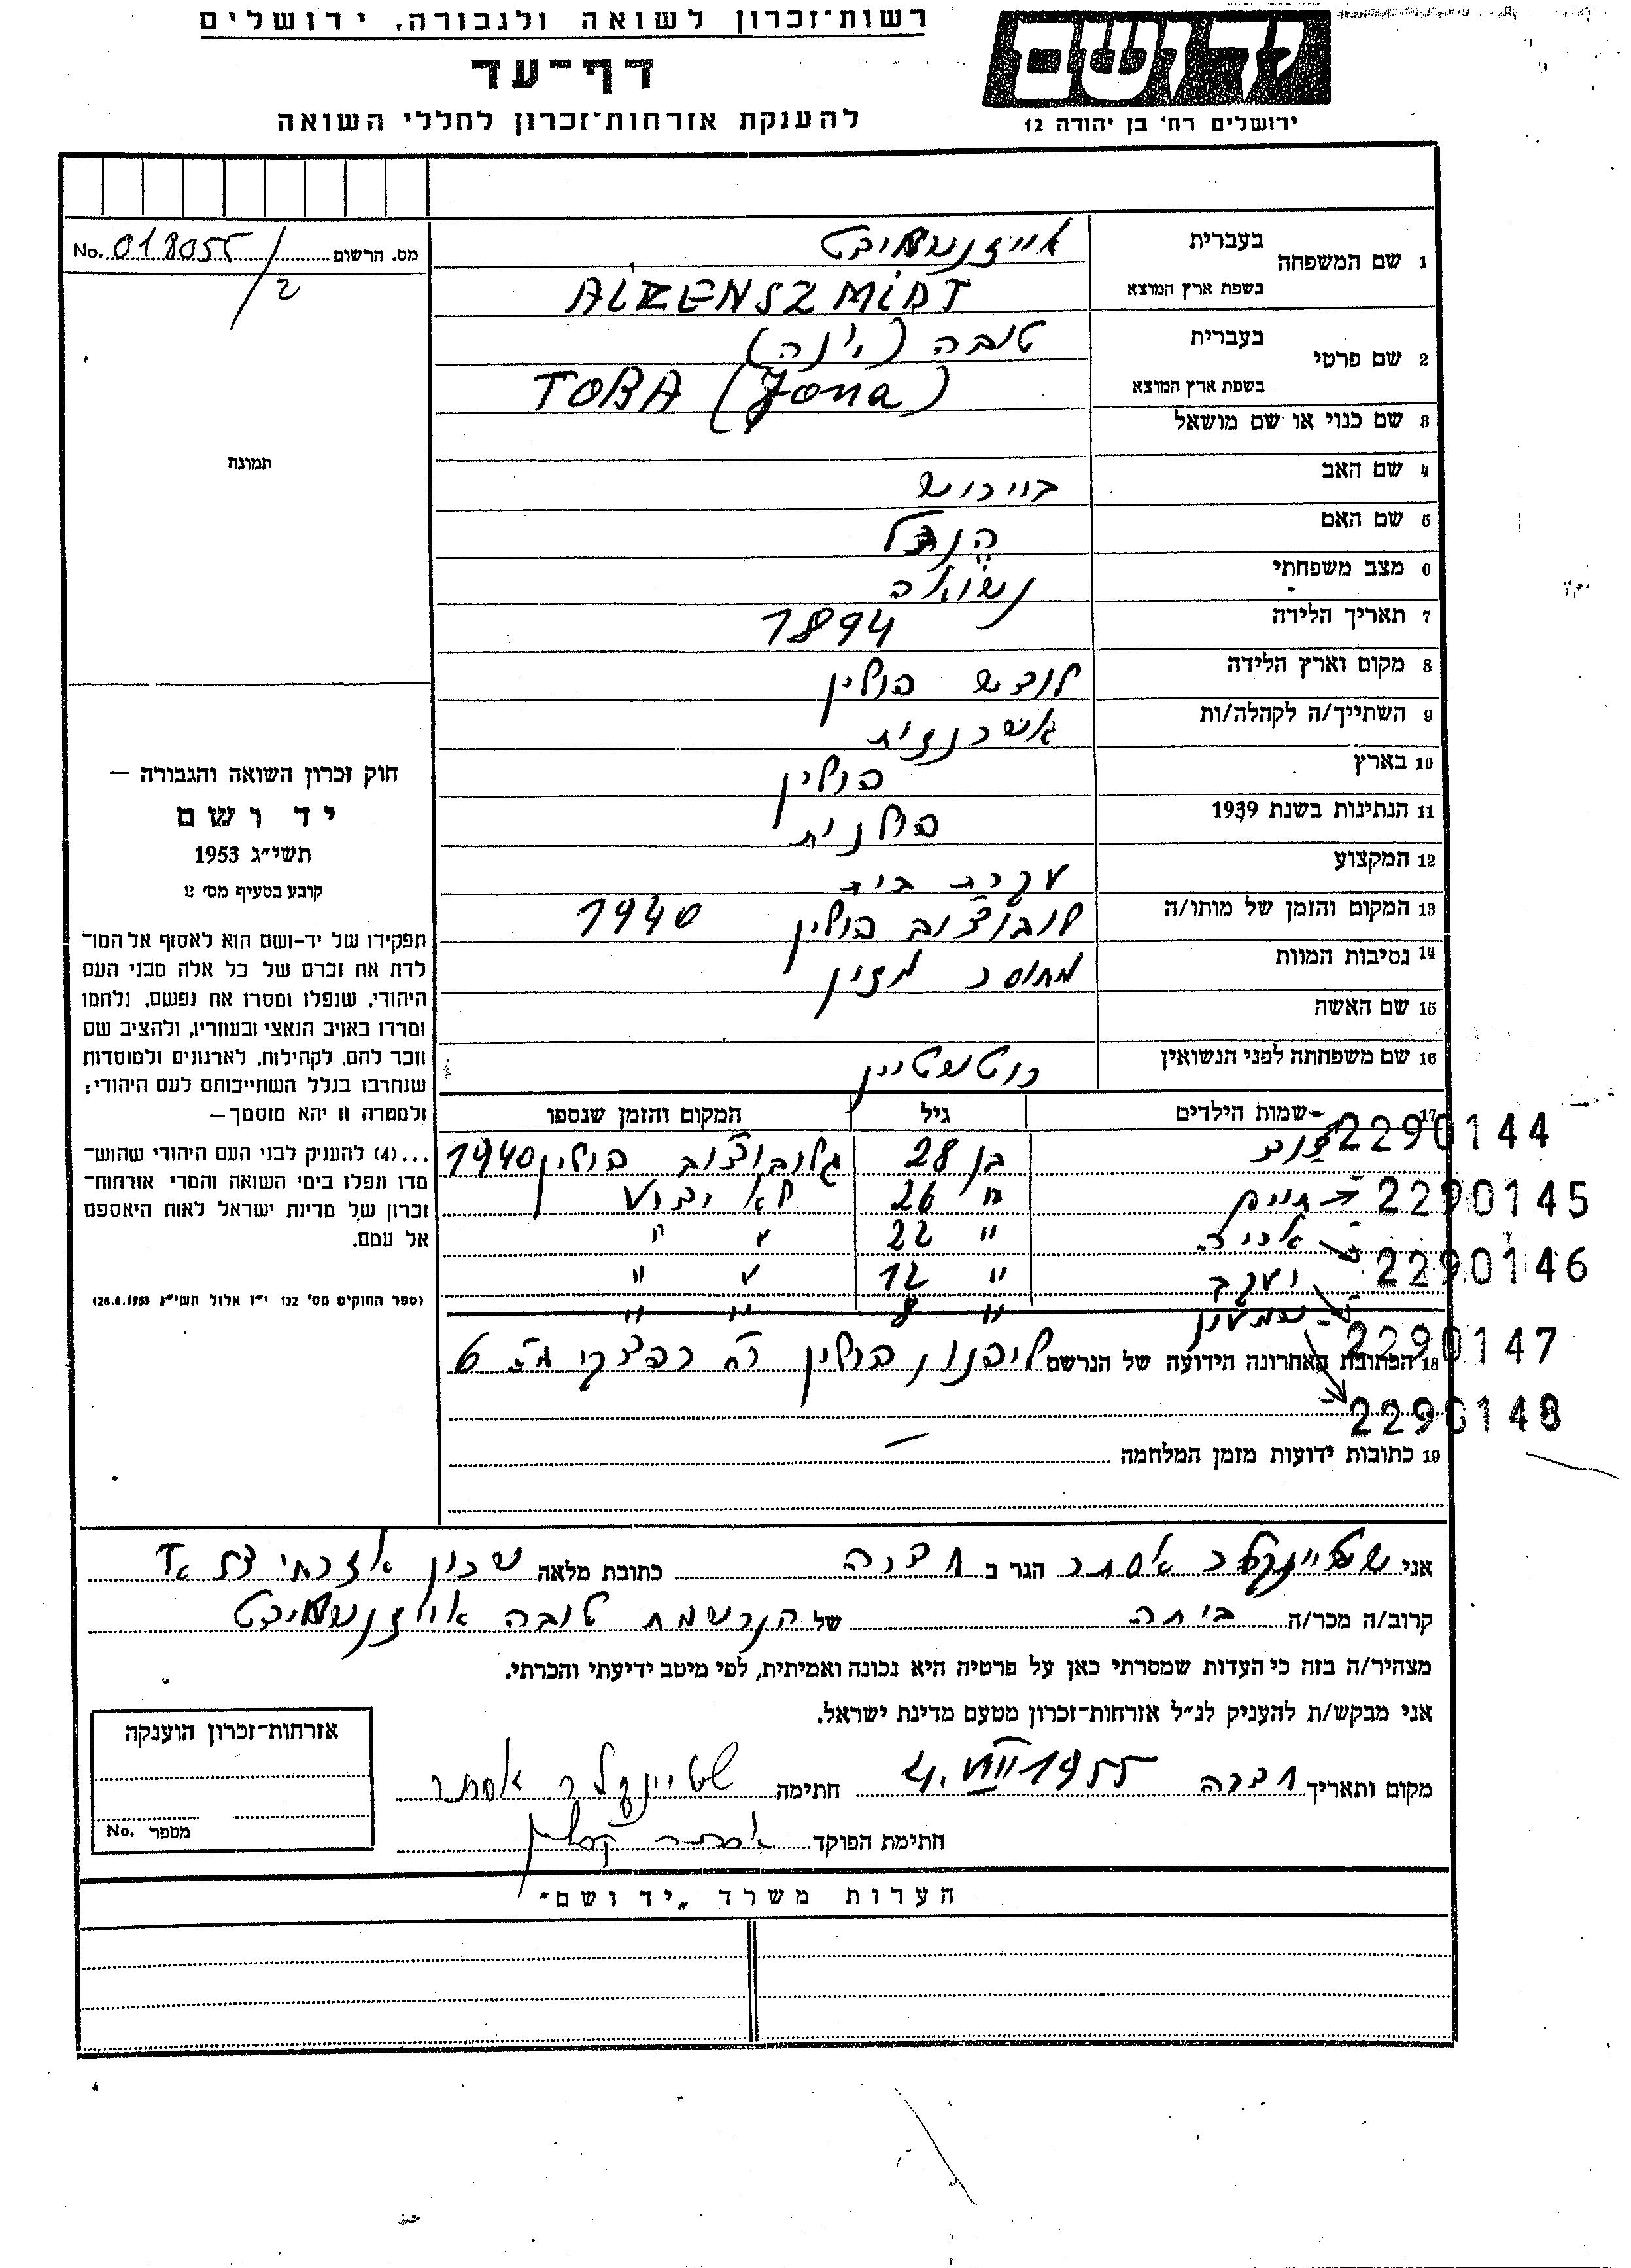 רשות־זכרון לשואה ולגבורה, ירושלים
דף־עד
להענקת אזרחות־זכרון לחללי השואה
יד ושם
ירושלים רח' בן יהודה 12
מס. הרשום 018055/2 No.
תמונה
חוק זכרון השואה והגבורה —
יד ושם
תשי״ג 1953
קובע בסעיף מס׳ 2
תפקידו של יד-ושם הוא לאסוף אל המו־
לדת את זכרם של כל אלה מבני העם
היהודי, שנפלו ומסרו את נפשם, נלחמו
ומרדו באויב הנאצי ובעוזריו, ולהציב שם
וזכר להם, לקהילות, לארגונים ולמוסדות
שנחרבו בגלל השתייכותם לעם היהודי;
ולמטרה זו יהא מוסמך—
...(4) להעניק לבני העם היהודי שהוש־
מדו ונפלו בימי השואה והמרי אזרחות־
זכרון של מדינת ישראל לאות היאספם
אל עמם.
(ספר החוקים מס׳ 132 י״ז אלול תשי״ג 28.8.1953)
1 שם המשפחה בעברית אייזנשמידט
בשפת ארץ המוצא AIZENSZMIDT
2 שם פרטי בעברית טובה (יונה)
בשפת ארץ המוצא TOBA (Jona)
3 שם כנוי או שם מושאל
4 שם האב
5 שם האם הנדל
6 מצב משפחתי נשואה
7 תאריך הלידה 1894
8 מקום וארץ הלידה לודש פולין
9 השתייך/ה לקהלה/ות אשכנזית
10 בארץ פולין
11 הנתינות בשנת 1939 פולנית
12 המקצוע עקרת בית
13 המקום והזמן של מותו/ה פולין 1940
14 נסיבות המוות מחוסר מזון
15 שם האשה
16 שם משפחתה לפני הנשואין רוטשטיין
17 שמות הילדים גיל המקום והזמן שנספו
בן 28 פולין 1940 2290144
חיים " 26 לא ידוע 2290145
אריה " 22 " " 2290146
יעקב " 12 " " 2290147
שמעון " 8 " " 2290148
18 הכתובת האחרונה הידועה של הנרשם פולין רח
19 כתובות ידועות מזמן המלחמה —
אני שטיינקלר אסתר הגר ב חדרה כתובת מלאה שכון אזרחי
קרוב/ה מכר/ה ביתה של הנרשמת טובה אייזנשמידט
מצהיר/ה בזה כי העדות שמסרתי כאן על פרטיה היא נכונה ואמיתית, לפי מיטב ידיעתי והכרתי.
אני מבקש/ת להעניק לנ״ל אזרחות־זכרון מטעם מדינת ישראל.
מקום ותאריך חדרה 4.VIII 1955 חתימה שטיינקלר אסתר
חתימת הפוקד
אזרחות־זכרון הוענקה
מספר No.
הערות משרד „יד ושם״